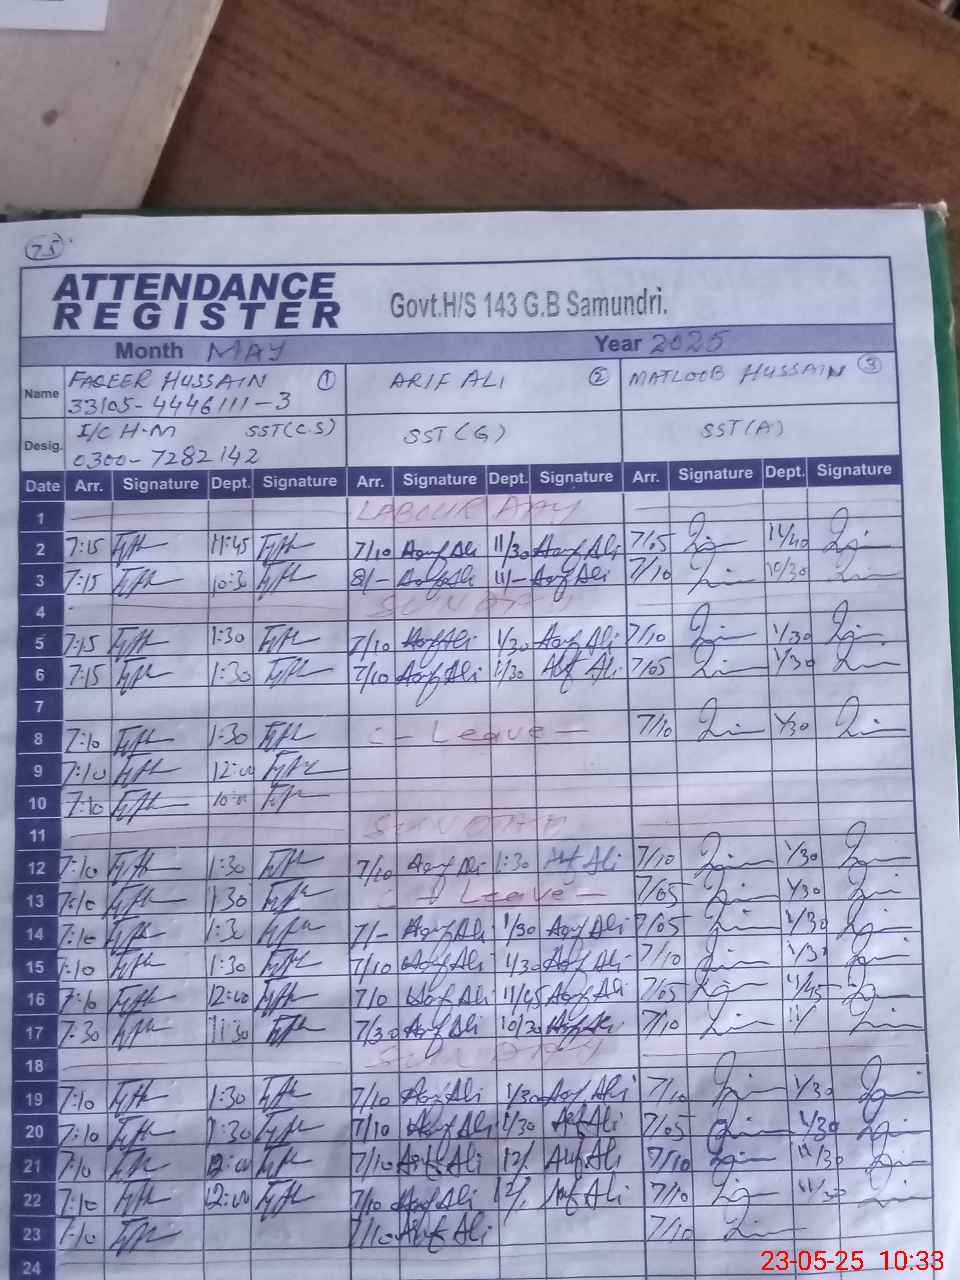 75
ATTENDANCE
REGISTER
Govt.H/S 143 G.B Samundri.
Month MAY Year 2025
Name FAQEER HUSSAIN 1 ARIF ALI 2 MATLOOB HUSSAIN 3
33105-4446111-3
Desig. I/C H.M SST(C.S) SST(G) SST(A)
0300-7282142
Date Arr. Signature Dept. Signature Arr. Signature Dept. Signature Arr. Signature Dept. Signature
1 LABOUR DAY
2 7:15 11:45 7/10 Arif Ali 11/30 Arif Ali 7/05 11/40
3 7:15 10:30 8/- Arif Ali 11/- Arif Ali 7/10 10/30
4 SUNDAY
5 7:15 1:30 7/10 Arif Ali 1/30 Arif Ali 7/10 1/30
6 7:15 1:30 7/10 Arif Ali 1/30 Arif Ali 7/05 1/30
7
8 7:10 1:30 - Leave - 7/10 1/30
9 7:10 12:00
10 7:10 10:00
11 SUNDAY
12 7:10 1:30 7/10 Arif Ali 1:30 Arif Ali 7/10 1/30
13 7:10 1:30 Leave - 7/05 1/30
14 7:10 1:30 7/- Arif Ali 1/30 Arif Ali 7/05 1/30
15 7:10 1:30 7/10 Arif Ali 1/30 Arif Ali 7/10 1/30
16 7:10 12:00 7/0 Arif Ali 11/45 Arif Ali 7/05 11/45
17 7:30 11:30 7/30 Arif Ali 10/30 Arif Ali 7/10 11/
18 SUNDAY
19 7:10 1:30 7/10 Arif Ali 1/30 Arif Ali 7/10 1/30
20 7:10 1:30 7/10 Arif Ali 1/30 Arif Ali 7/05 1/30
21 7:10 12:00 7/10 Arif Ali 12/ Arif Ali 7/10 11/30
22 7:10 12:00 7/10 Arif Ali 12/ Arif Ali 7/10 11/30
23 7:10 7/10 Arif Ali 7/10
24
23-05-25 10:33